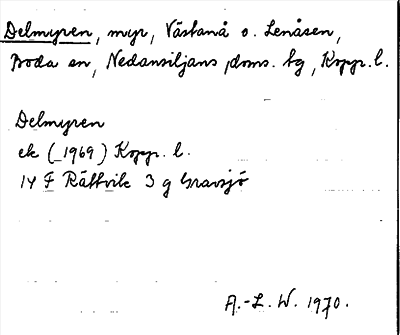 Delmyren, myr, Västanå o. Lenåsen,
Boda sn, Nedansiljans doms. tg, Kopp. l.
Delmyren
ek (1969) Kopp. l.
14 F Rättvik 3 g Gravsjö
A.-L. W. 1970.